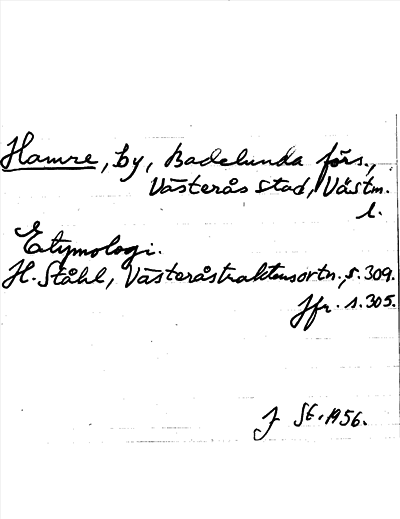 Hamre, by, Badelunda förs.,
Västerås stad, Västm.
l.
Etymologi.
H. Ståhl, Västeråstraktens ortn., s. 309.
Jfr. s. 305.
St. 1956.